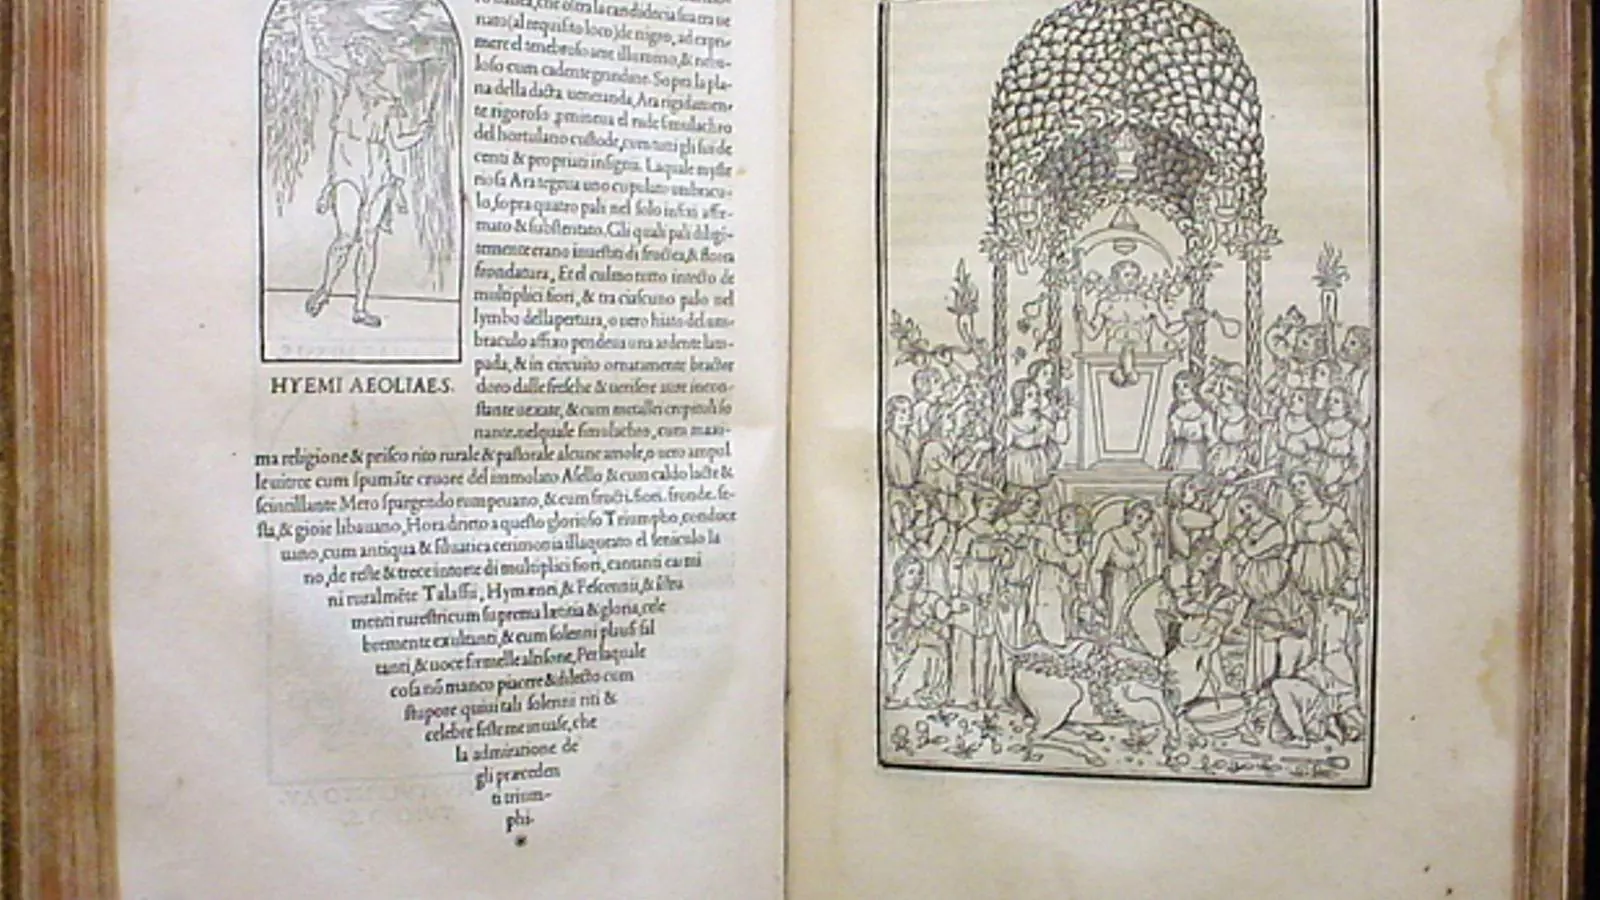 to bianca, che oltra la candidecia sua era ue
nato(al requisito loco)de nigro, ad expri-
mere el tenebroso aere illumino, & nebu-
loso cum cadente grandine. Sopra la pla-
na della dicta ueneranda Ara rigidamen-
te rigoroso ,permineua el rude simulachro
del hortulano custode,cum tutti gli sui de
centi & propriati insignii. Laquale myste
riosa Ara tegeua uno cupulato umbracu-
lo,sopra quatro pali nel solo infixi affir-
mato & substentato. Gli quali pali diligé-
temente erano inuestiti di fructea,& florea
frondatura, Et el culmo tutto intecto de
multiplici fiori, & tra ciascuno palo nel
lymbo dellapertura, o uero hiato del um-
braculo affixo pendeua una ardente lam-
pada, & in circuito ornatamente bractee
doro dalle fresche & uerifere aure incon-
stante uexate, & cum metallei crepituli so
nante.nelquale simulachro, cum maxi-
HYEMI AEOLIAE.S.
ma religione & prisco rito rurale & pastorale alcune amole,o uero ampul
le uitree cum spumáte cruore del immolato Asello & cum caldo lacte &
scintillante Mero spargendo rumpeuano, & cum fructi. fiori. fronde. fe-
sta, & gioie libauano, Hora drieto a questo glorioso Triumpho, conduce
uano, cum antiqua & siluatica cerimonia illaqueato el seniculo Ia
no, de reste & trece intorte di multiplici fiori, cantanti carmi
ni ruralméte Talassii, Hymænei, & Fescennii, & istru
menti rurestri cum suprema lætitia & gloria, cele
bremente exultanti, & cum solenni plausi sal
tanti, & uoce femelle altisone, Per laquale
cosa nó manco piacere & dilecto cum
stupore quiui tali solenni riti &
celebre feste me inuase, che
la admiratione de
gli præceden
ti trium-
phi.